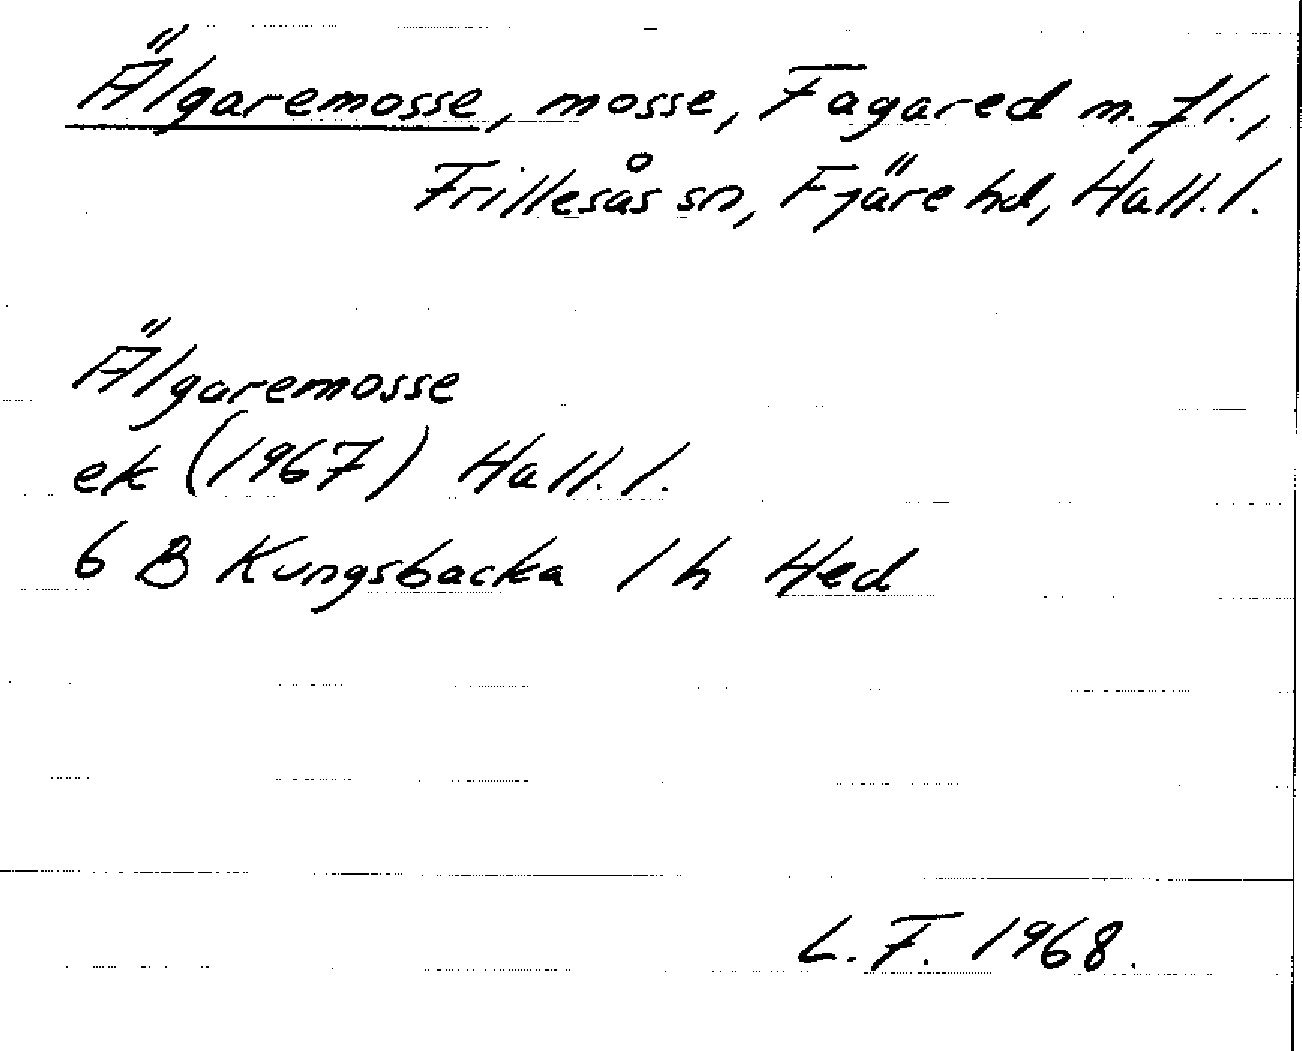 Älgaremosse, mosse, Fagared m. fl.,
Frillesås sn, Fjäre hd, Hall. l.
Älgaremosse
ek (1967) Hall. l.
6 B Kungsbacka 1 h Hed
L. F. 1968.